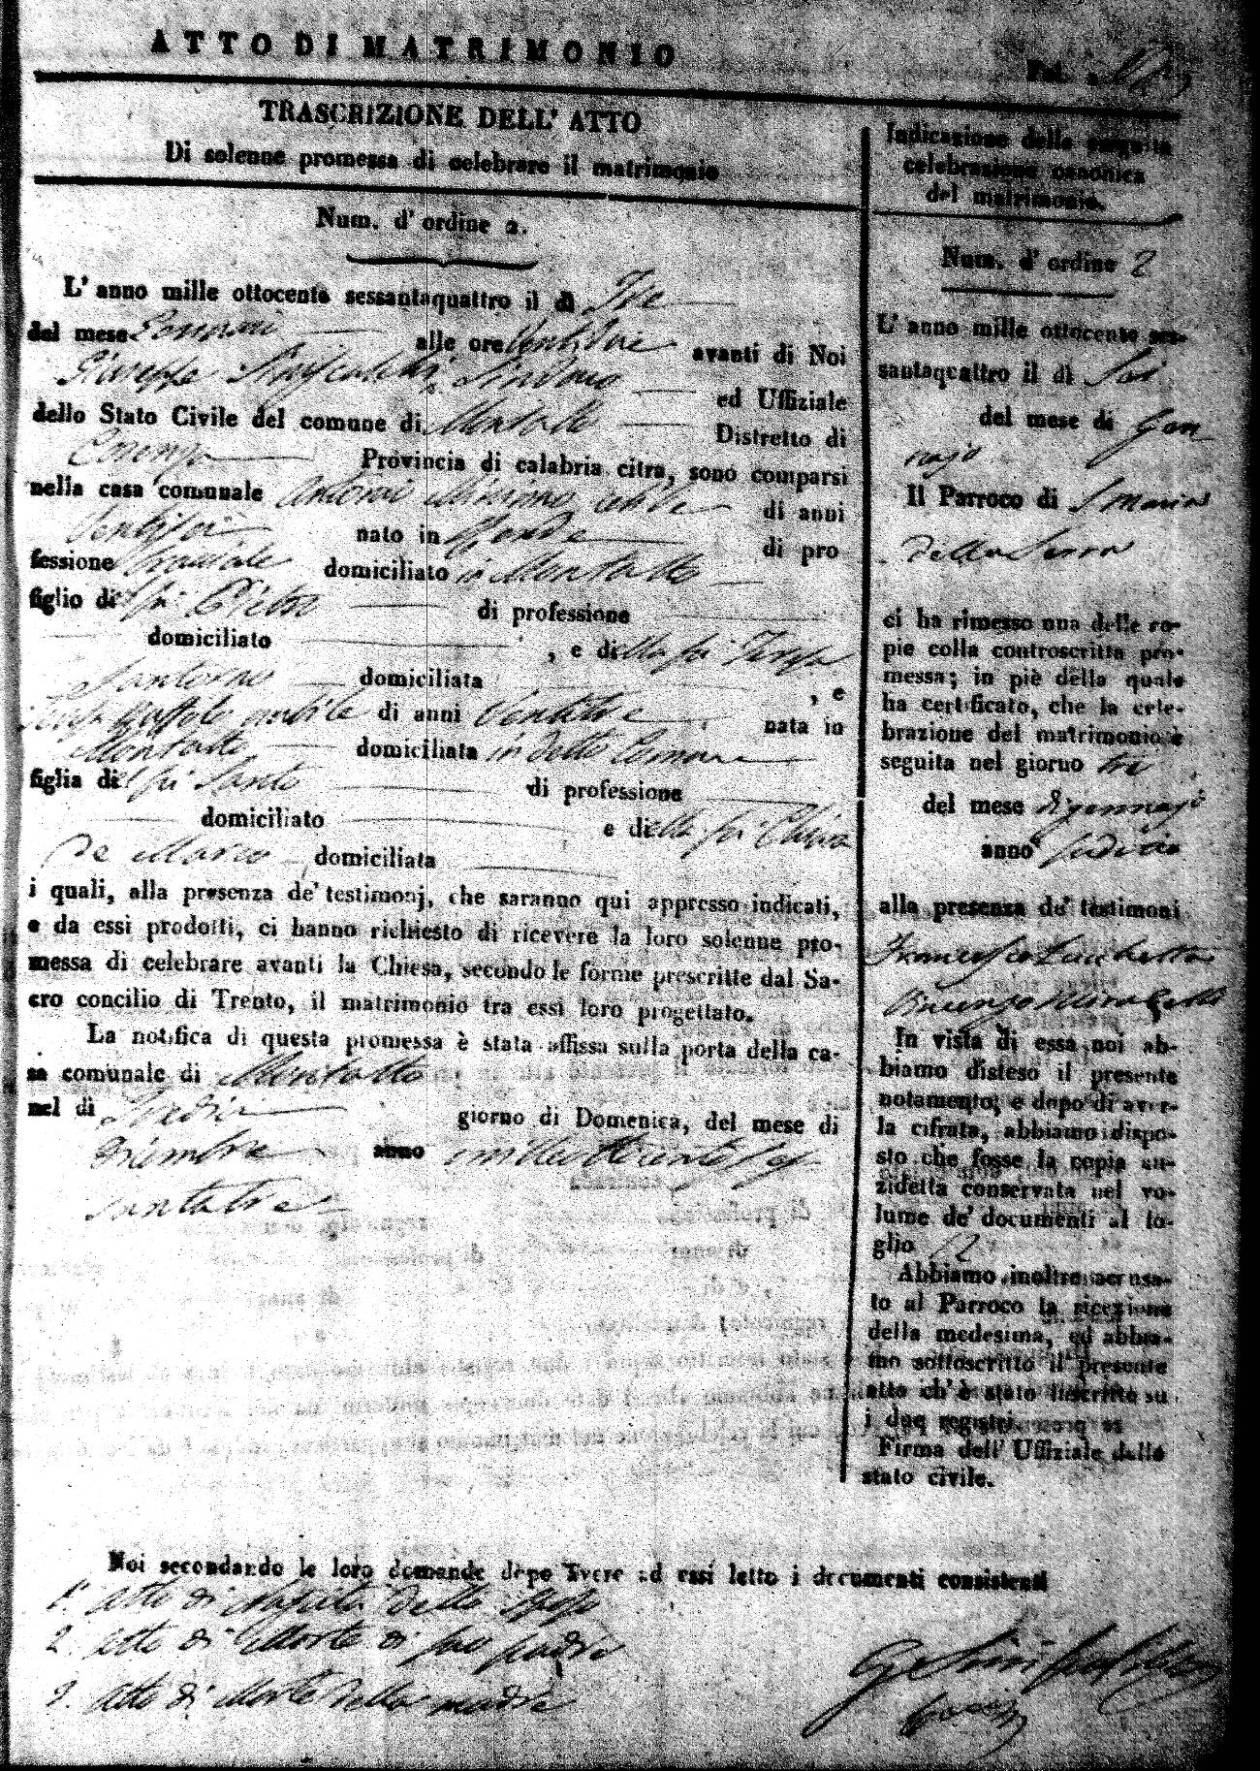 ATTO DI MATRIMONIO
TRASCRIZIONE DELL' ATTO
Di solenne promessa di celebrare il matrimonio
Num. d' ordine 2.
L' anno mille ottocento sessantaquattro il dì Tre
del mese Gennaio alle ore Ventidue avanti di Noi
Giuseppe Sindaco ed Uffiziale
dello Stato Civile del comune di Montalto Distretto di
Cosenza Provincia di calabria citra, sono comparsi
nella casa comunale Antonio celibe di anni
Ventisei nato in Rende di pro
fessione domiciliato in Montalto
figlio di fu Pietro di professione
domiciliato , e della fu Teresa
Santoro domiciliata , e
nubile di anni Ventitre nata in
Montalto domiciliata in detto Comune
figlia del fu Santo di professione
domiciliato e della fu Chiara
De Marco domiciliata
i quali, alla presenza de' testimonj, che saranno qui appresso indicati,
e da essi prodotti, ci hanno richiesto di ricevere la loro solenne pro-
messa di celebrare avanti la Chiesa, secondo le forme prescritte dal Sa-
cro concilio di Trento, il matrimonio tra essi loro progettato.
La notifica di questa promessa è stata affissa sulla porta della ca-
sa comunale di Montalto
nel dì Tredici giorno di Domenica, del mese di
anno mille ottocento ses
santatre
Noi secondando le loro domande dopo avere ad essi letto i documenti consistenti
1. atto di Nascita dello sposo
2. atto di Morte di suo padre
3. Atto di Morte della madre
Fol.
Indicazione della seguita
celebrazione canonica
del matrimonio.
Num. d' ordine 2
L' anno mille ottocento ses-
santaquattro il dì Sei
del mese di Gen
najo
Il Parroco di S Maria
della Serra
ci ha rimesso una delle co-
pie colla controscritta pro-
messa; in piè della quale
ha certificato, che la cele-
brazione del matrimonio è
seguita nel giorno tre
del mese di gennajo
anno sudetto
alla presenza de' testimoni
Francesco
Vincenzo
In vista di essa noi ab-
biamo disteso il presente
notamento, e dopo di aver-
la cifrata, abbiamo dispo-
sto che fosse la copia an-
zidetta conservata nel vo-
lume de' documenti al fo-
glio 12
Abbiamo inoltre accusa-
to al Parroco la ricezione
della medesima, ed abbia-
mo sottoscritto il presente
atto ch' è stato inscritto su
i due registri.
Firma dell' Uffiziale dello
stato civile.